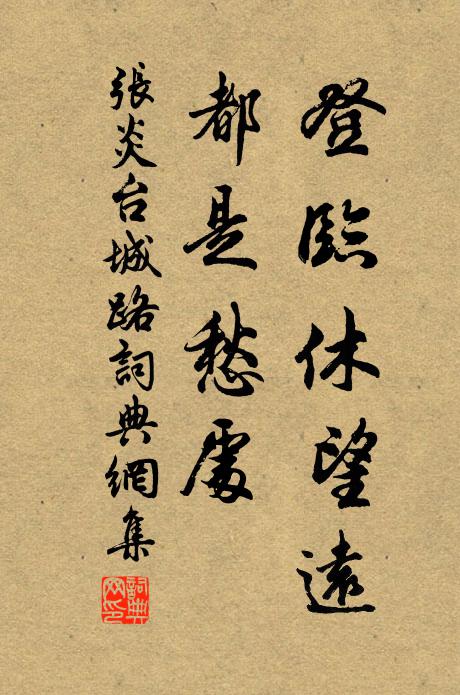 登臨休望遠
都是愁處
張炎台城路詞典網集
詞典网印